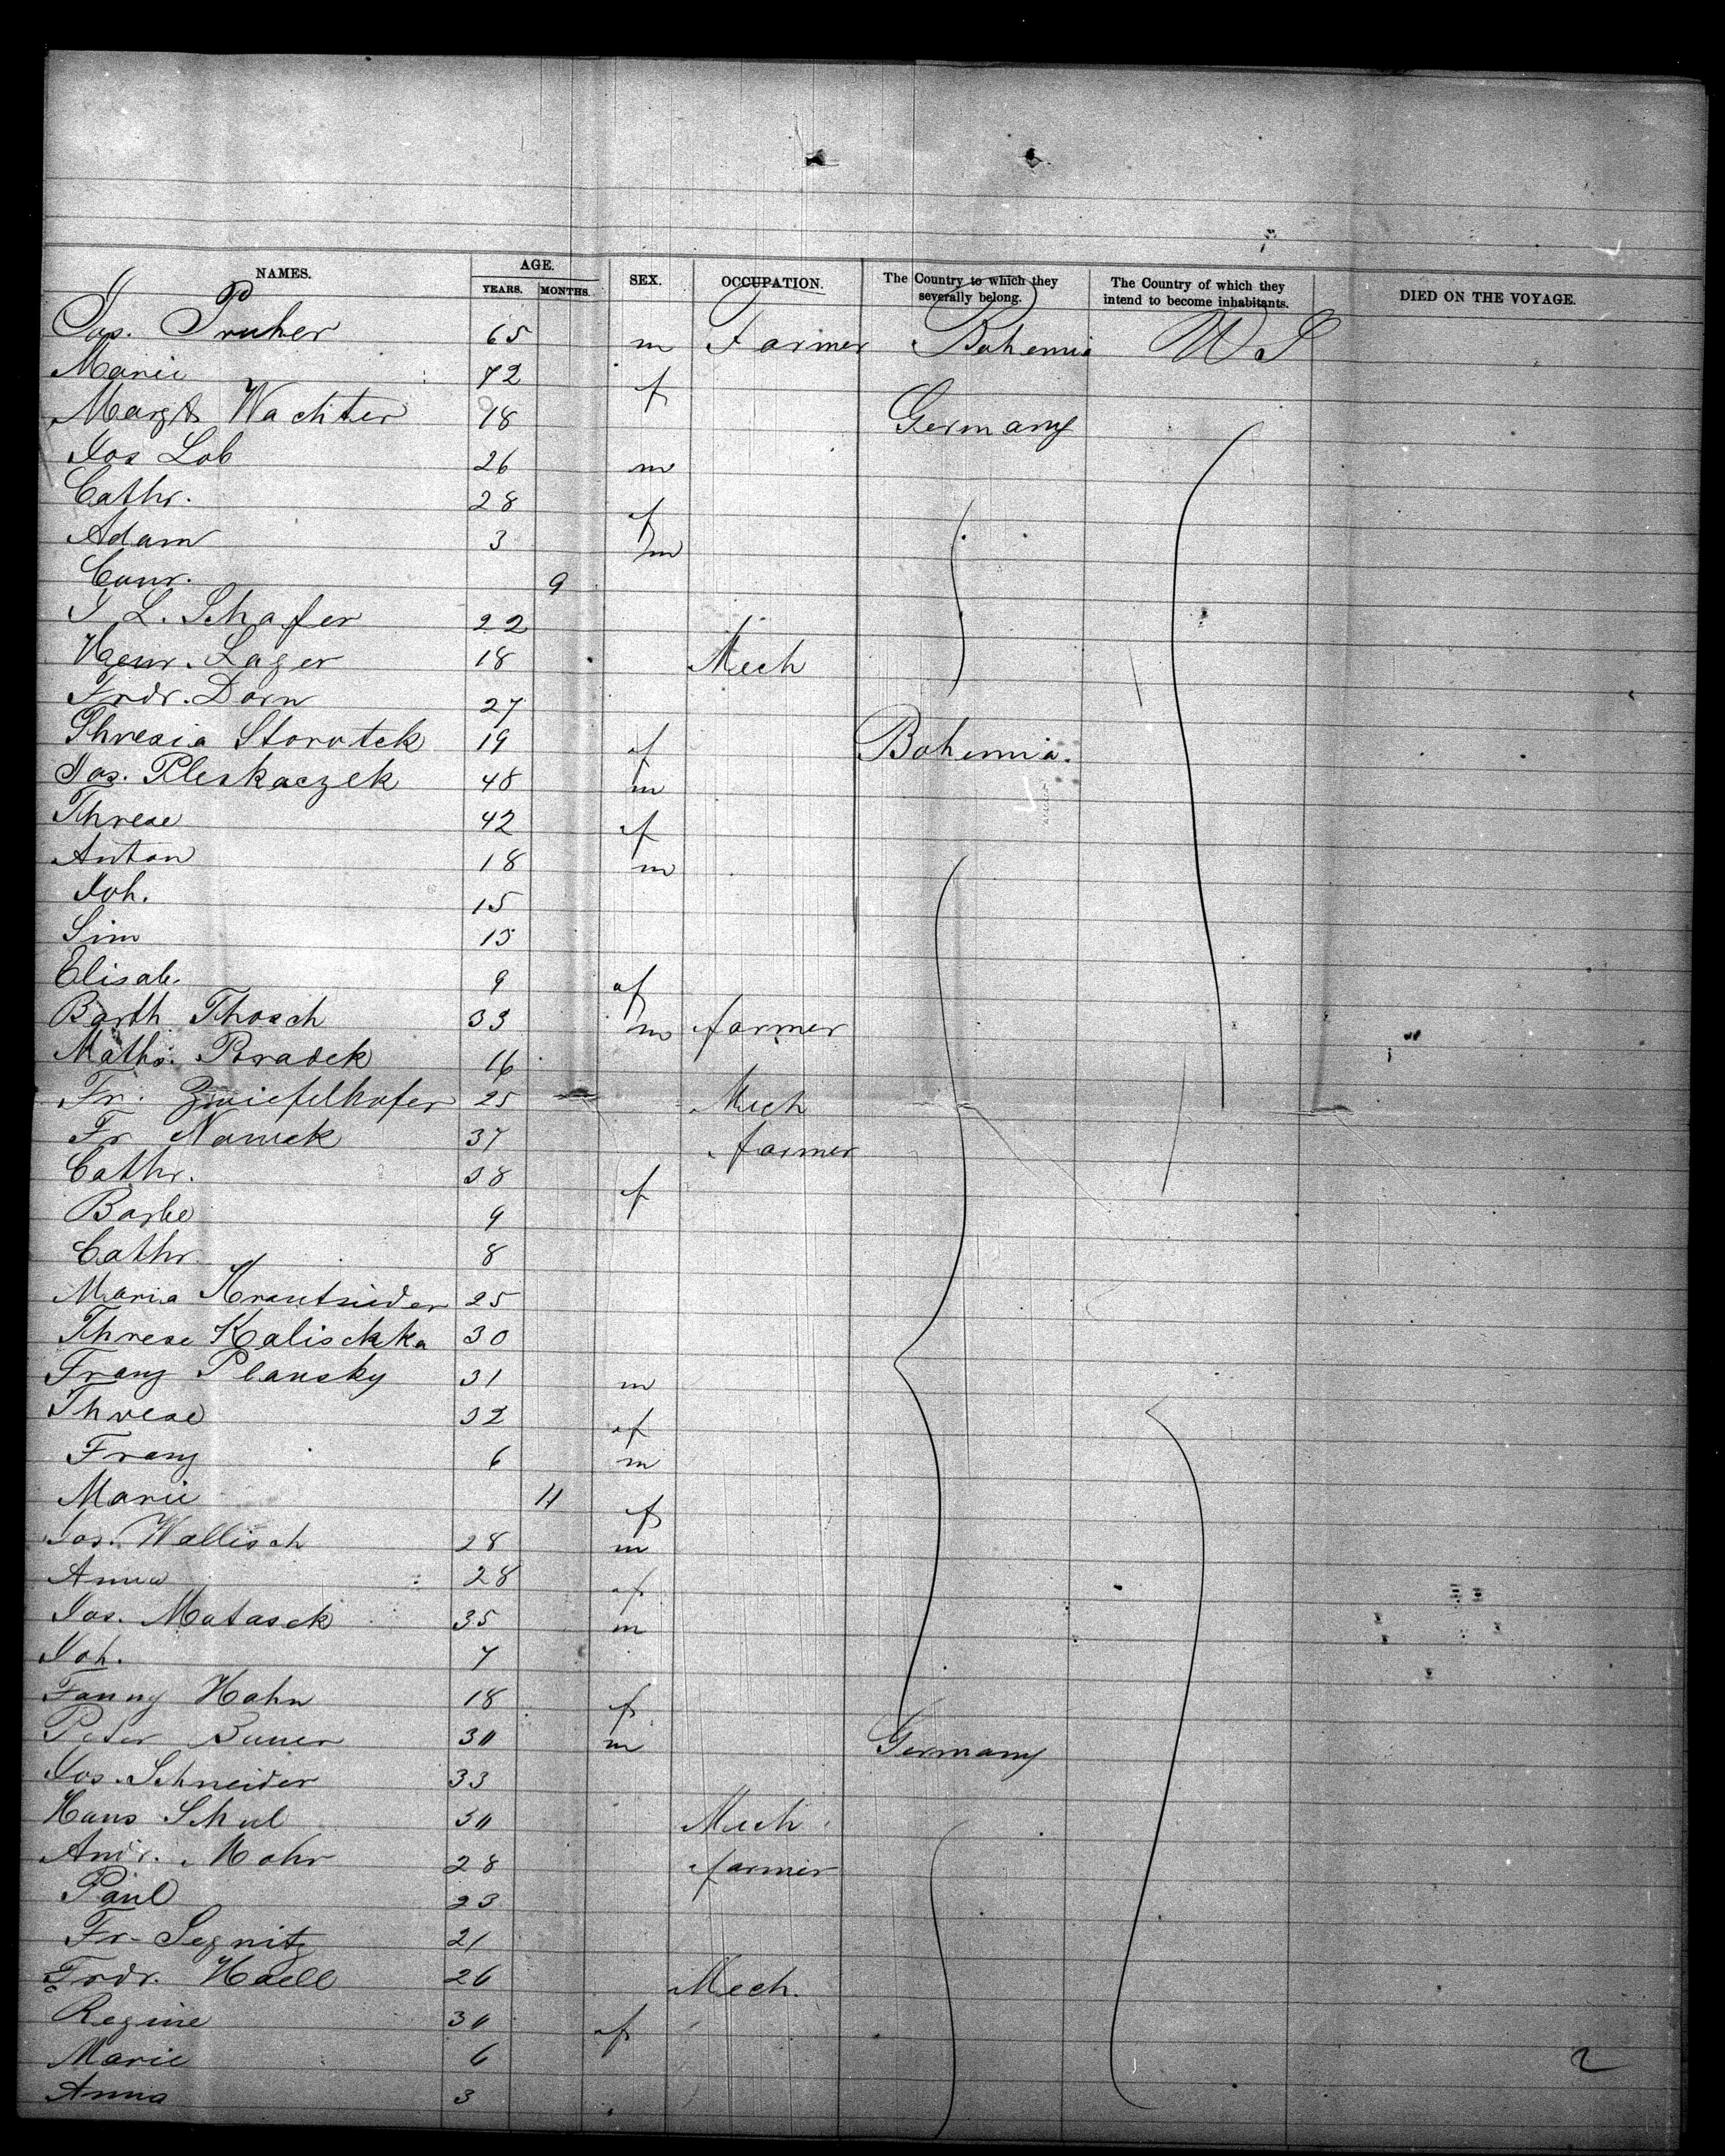 NAMES. AGE. SEX. OCCUPATION. The Country to which they severally belong. The Country of which they intend to become inhabitants. DIED ON THE VOYAGE.
YEARS. MONTHS.
Jos. Pruher 65 m Farmer Bohemia U S
Marie 72 f
Margt Wachter 18 Germany
Jos Lob 26 m
Cathr. 28 f
Adam 3 m
Conr. 9
J L. Schafer 22
Henr. Lager 18 Mech
Frdr. Dorn 27
Thresia Storotek 19 f Bohemia.
Jos. Pleskaczek 48 m
Threse 42 f
Anton 18 m
Joh. 15
Sim 15
Elisab. 9 f
Barth Thosch 33 m farmer
Maths. Bradek 16
Fr. Zwiefelhofer 25 Mech
Fr Namek 37 farmer
Cathr. 38 f
Barbe 9
Cathr. 8
Maria Krautsieder 25
Threse Kalischka 30
Franz Plansky 31 m
Threse 32 f
Franz 6 m
Marie 11 f
Jos. Wallisch 28 m
Anna 28 f
Jos. Matasek 35 m
Joh. 7
Fanny Hahn 18 f
Peter Bauer 30 m Germany
Jos. Schneider 33
Hans Schul 30 Mech
Andr. Mohr 28 farmer
Paul 23
Fr. Segnitz 21
Frdr. Haell 26 Mech.
Regine 30 f
Marie 6
Anna 3
2